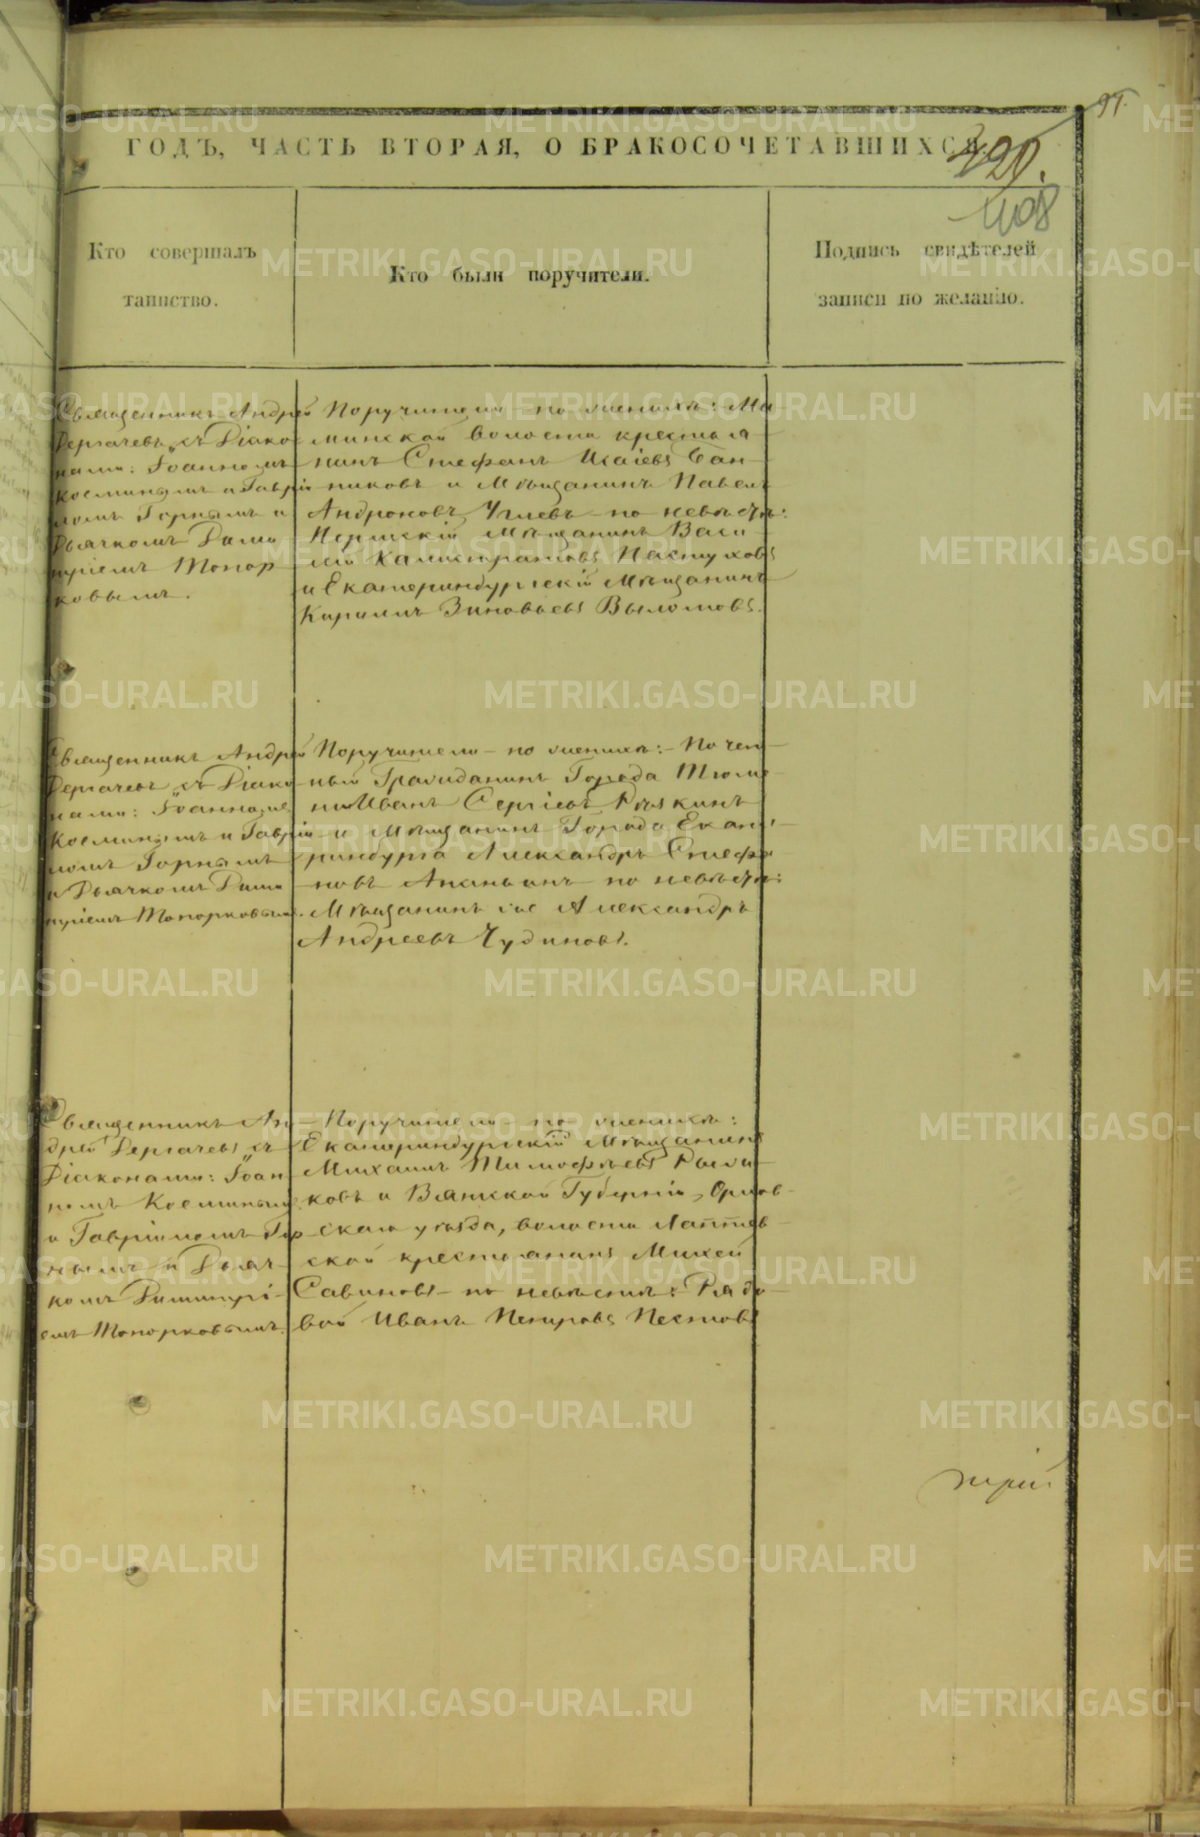 ГОДЪ, ЧАСТЬ ВТОРАЯ, О БРАКОСОЧЕТАВШИХСЯ.
Кто совершалъ
таинство.
Кто были поручители.
Подпись свидѣтелей
записи по желанію.
Священникъ Андрей
Дергачевъ съ Діако
нами: Іоанномъ
Косминымъ и Гаврі
ломъ Горнымъ и
Дьячкомъ Дими
тріемъ Топор
ковымъ.
Поручители по женихѣ:
минской волости крестья
нинъ Стефанъ Исаіевъ Бан
никовъ и Мѣщанинъ Павелъ
Андроновъ по невѣстѣ:
Мѣщанинъ Васи
лій Калистратовъ Пастуховъ
и Екатеринбургскій Мѣщанинъ
Кириллъ Зиновьевъ
Священникъ Андрей
Дергачевъ съ Діако
нами: Іоанномъ
Косминымъ и Гаврі
ломъ Горнымъ
и Дьячкомъ Дими
тріемъ Топорковымъ.
Поручители по женихѣ: Почет
ный Гражданинъ Города Тюме
ни Иванъ Сергіевъ
и Мѣщанинъ Города Екате
ринбурга Александръ Стефа
новъ Ананьинъ по невѣстѣ:
Мѣщанинъ Александръ
Андреевъ Чудиновъ.
Священникъ Ан
дрей Дергачевъ съ
Діаконами: Іоан
номъ Косминымъ
и Гавріиломъ Гор
нымъ и Дьяч
комъ Димитрі
емъ Топорковымъ.
Поручители по женихѣ:
Екатеринбургскій Мѣщанинъ
Михаилъ Тимофѣевъ
ковъ и Вятской Губерніи, Орлов
скаго уѣзда, волости Лаптев
ской крестьянинъ Михей
Савиновъ по невѣстѣ: Рядо
вой Иванъ Петровъ Пестовъ
METRIKI.GASO-URAL.RU